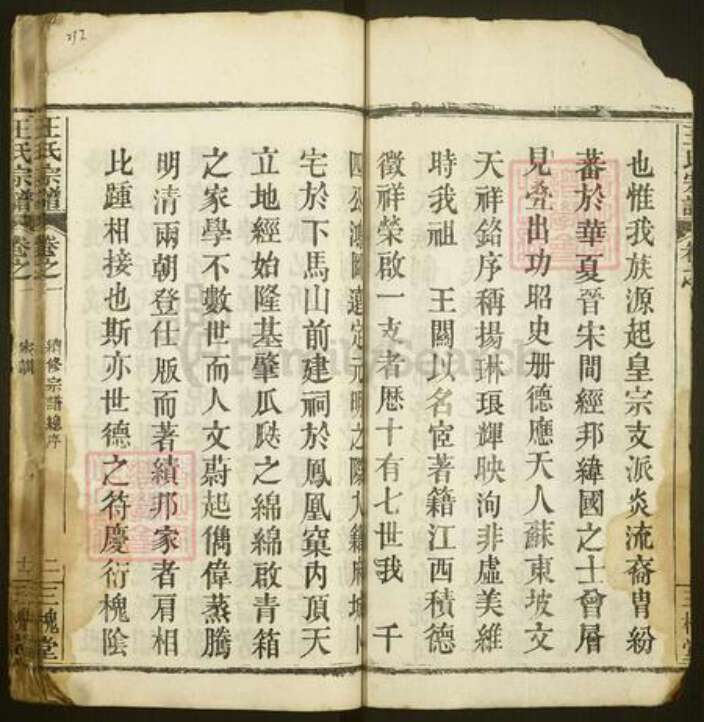 也惟我族源起皇宗支派炎流裔胄紛
蕃於華夏晉宋間經邦緯國之士曾層
見疊出功昭史册德應天人蘇東坡文
天祥銘序稱揚琳琅輝映洵非虛美維
時我祖 王闢以名宦著籍江西積德
徵祥榮啟一支者歷十有七世我 千
四公鴻圖遠定元明之際入籍麻城卜
宅於下馬山前建祠於鳳凰窠內頂天
立地經始隆基肇瓜瓞之綿綿啟青箱
之家學不數世而人文蔚起儁偉蒸騰
明清兩朝登仕版而著績邦家者肩相
比踵相接也斯亦世德之符慶衍槐陰
王氏宗譜 卷之一 續修宗譜總序 二 三槐堂
王氏宗譜 卷之一 家訓
FamilySearch